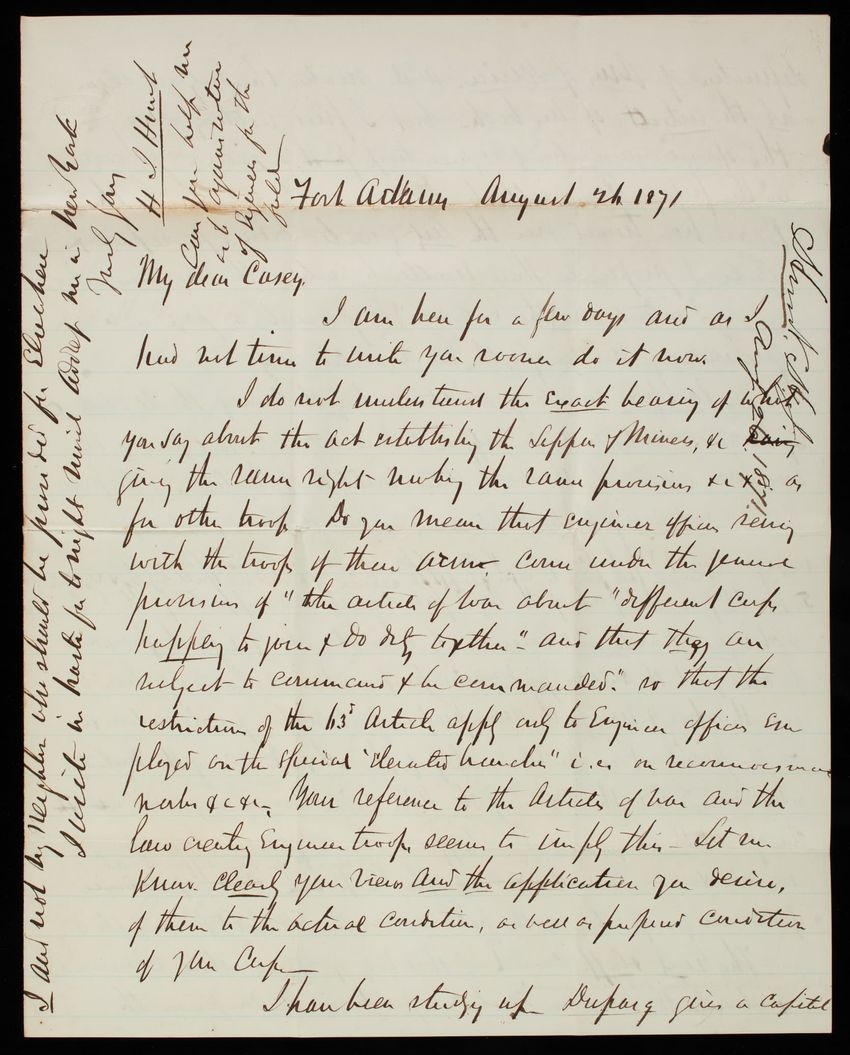 Fort Adams August 26 1871
My dear Casey,
I am here for a few days and as I
had not time to write you sooner do it now.
I do not understand the exact bearing of what
you say about the act establishing the Sappers & Miners, &c
giving the same right making the same provisions &c &c as
for other troops. Do you mean that engineer officers serving
with the troops of their arm come under the general
provisions of "the article of War about "different corps
happening to join & do duty together" - and that they are
subject to command & be commanded." so that the
restrictions of the 63d Article apply only to Engineer officers em
ployed on the special "elevated branches" i.e. on reconnoissance
works &c &c. Your reference to the Articles of War and the
law creating Engineer troops seems to imply this - Let me
know clearly your views and the application you desire,
of them to the actual condition, as well as proposed condition
of your Corps
I have been studying up Duparcq gives a capital
I and not my neighbor who should be provided for elsewhere
I write in haste for to night mail address me in New York
Truly yours
H J Hunt
Can you help me
as to organization
of Engineers for the
field
Hunt,
Aug 26. 1871.